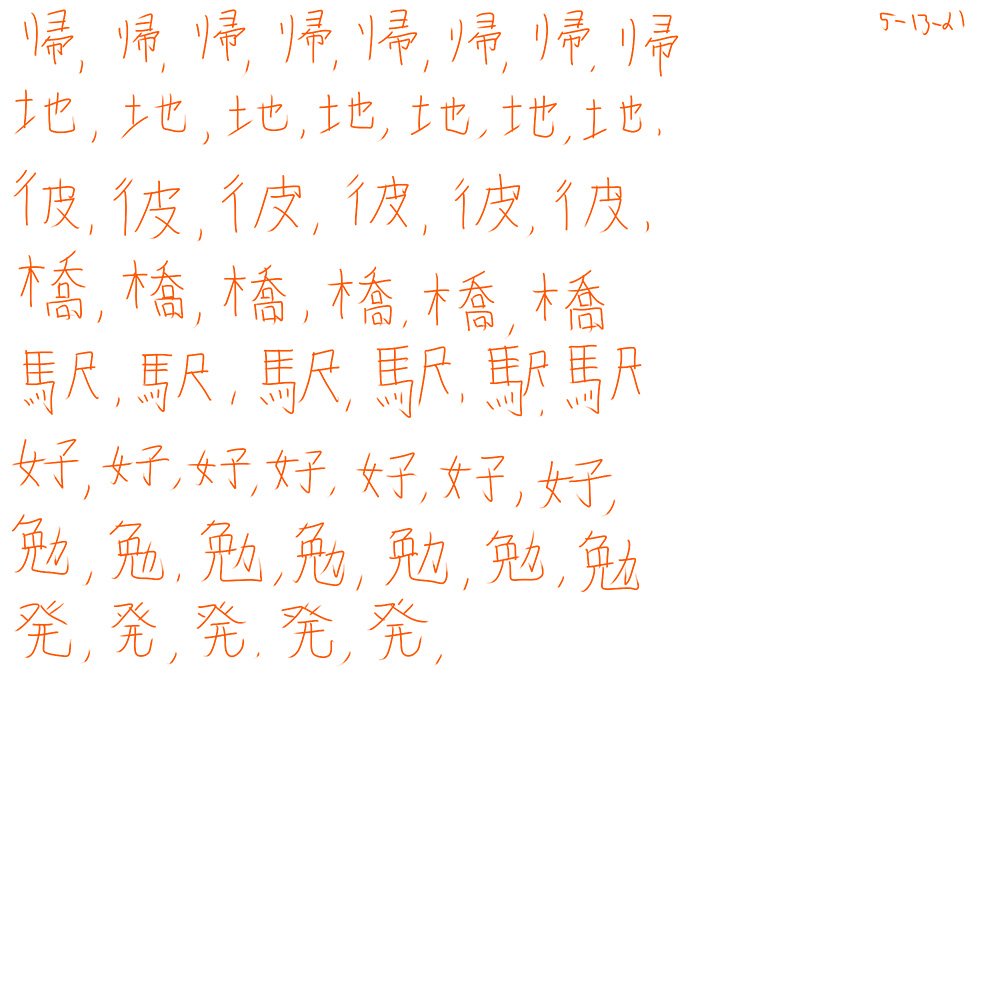 5-13-21
帰, 帰, 帰, 帰, 帰, 帰, 帰, 帰
地, 地, 地, 地, 地, 地, 地,
彼, 彼, 彼, 彼, 彼, 彼,
橋, 橋, 橋, 橋, 橋, 橋
駅, 駅, 駅, 駅, 駅, 駅
好, 好, 好, 好, 好, 好, 好,
勉, 勉, 勉, 勉, 勉, 勉, 勉
発, 発, 発, 発, 発,